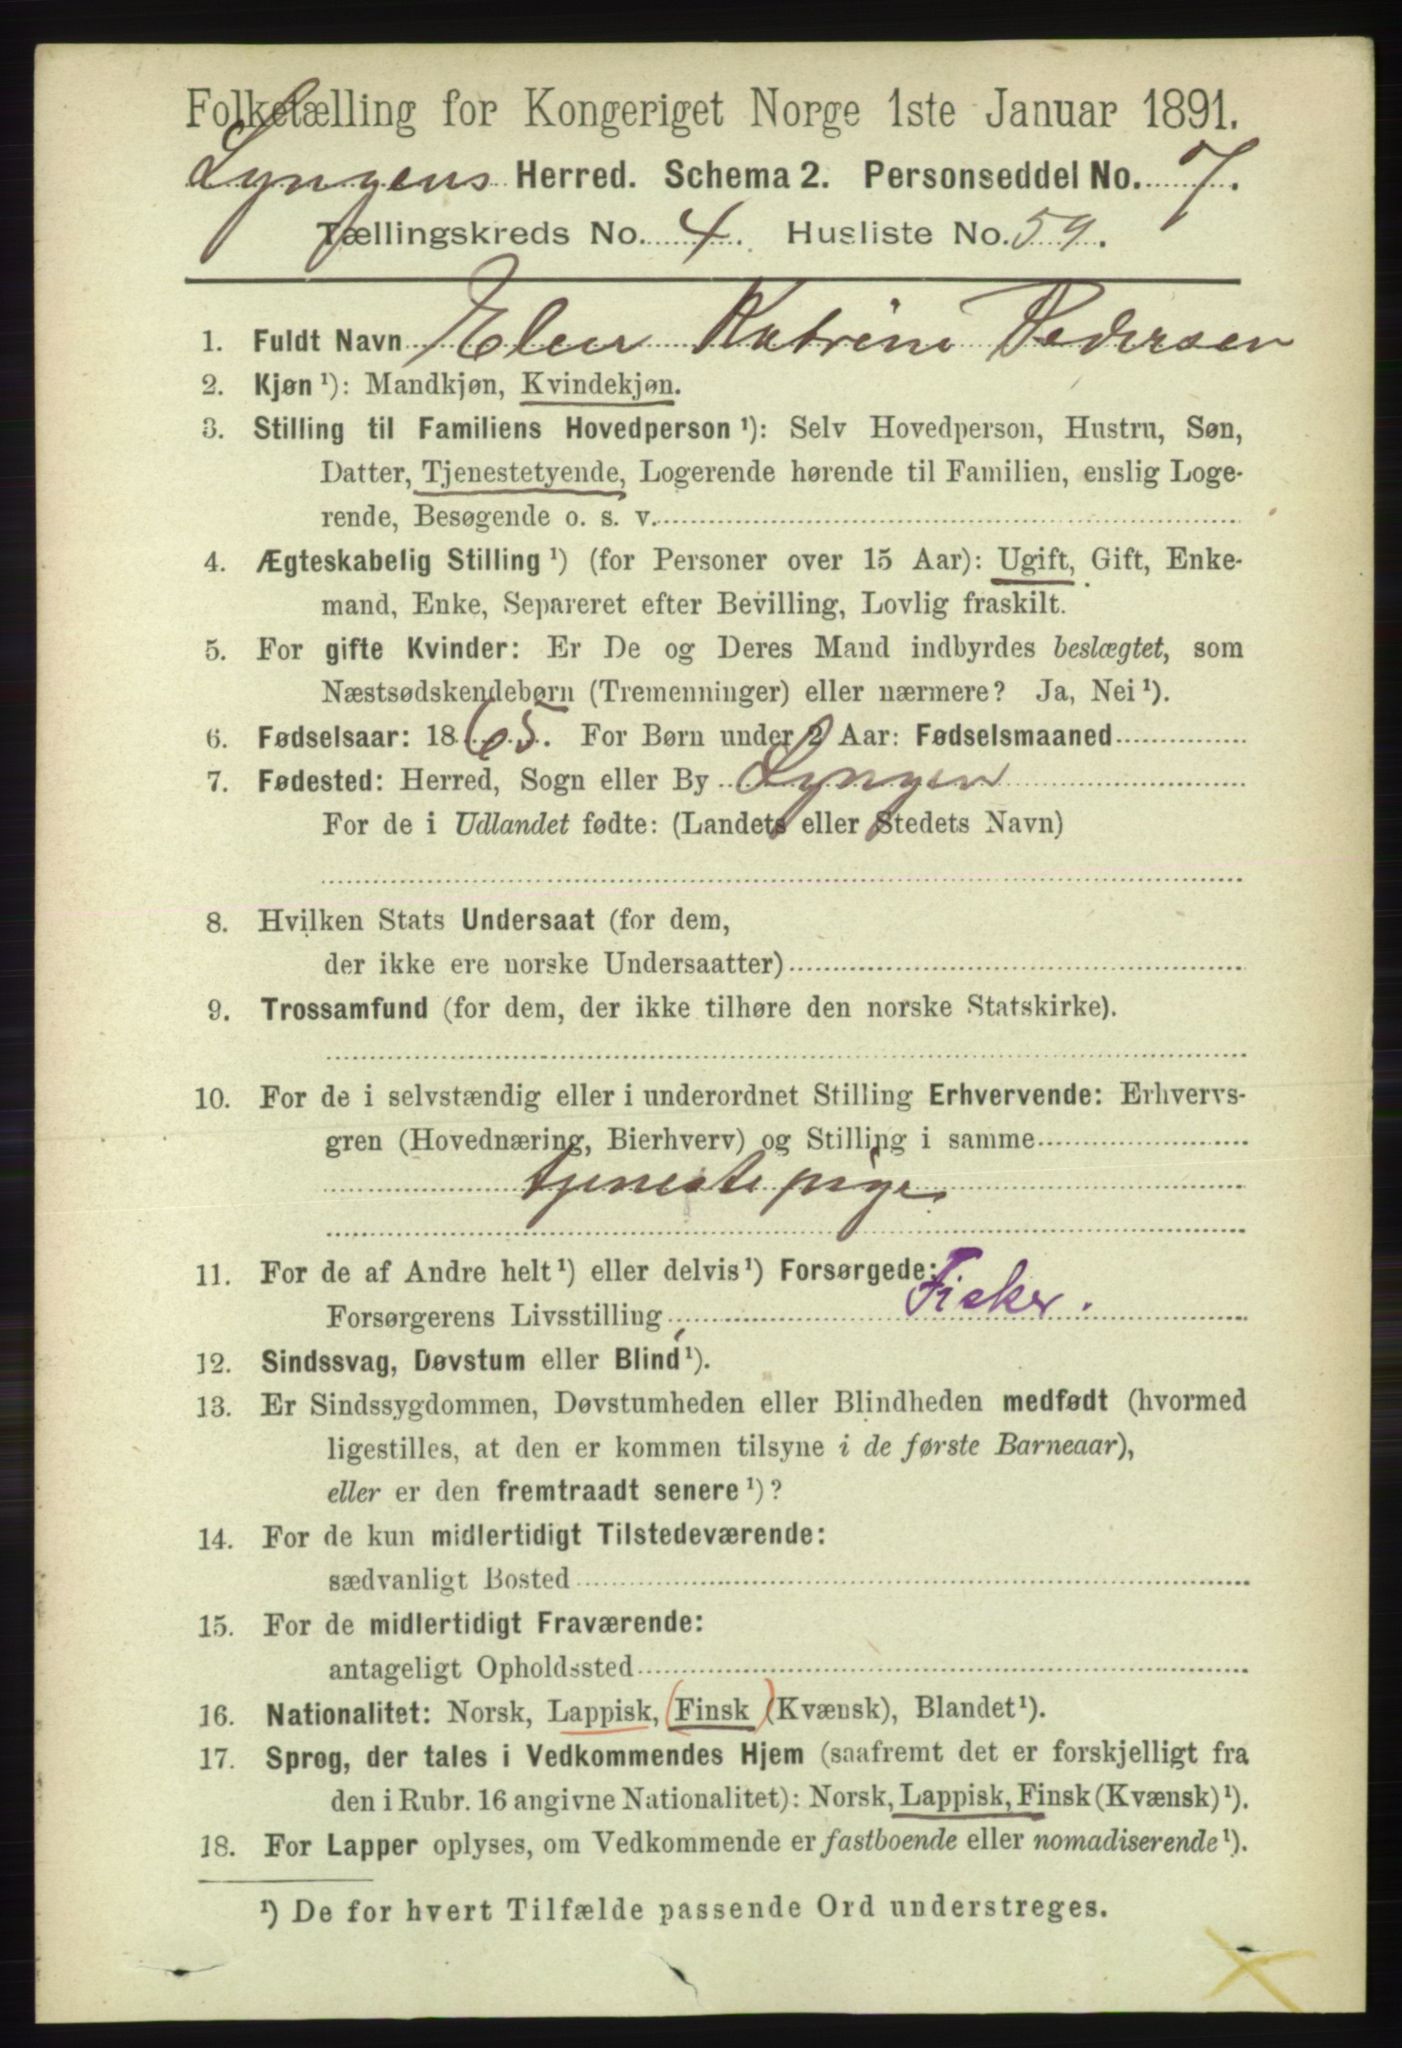 Folketælling for Kongeriget Norge 1ste Januar 1891.
Lyngens Herred. Schema 2. Personseddel No. 7.
Tællingskreds No. 4. Husliste No. 59.
1. Fuldt Navn Elen Katrine Pedersen
2. Kjøn ¹): Mandkjøn, Kvindekjøn.
3. Stilling til Familiens Hovedperson ¹): Selv Hovedperson, Hustru, Søn,
Datter, Tjenestetyende, Logerende hørende til Familien, enslig Loge-
rende, Besøgende o. s. v.
4. Ægteskabelig Stilling ¹) (for Personer over 15 Aar): Ugift, Gift, Enke-
mand, Enke, Separeret efter Bevilling, Lovlig fraskilt.
5. For gifte Kvinder: Er De og Deres Mand indbyrdes beslægtet, som
Næstsødskendebørn (Tremenninger) eller nærmere? Ja, Nei ¹).
6. Fødselsaar: 1865. For Børn under 2 Aar: Fødselsmaaned
7. Fødested: Herred, Sogn eller By Lyngen
For de i Udlandet fødte: (Landets eller Stedets Navn)
8. Hvilken Stats Undersaat (for dem,
der ikke ere norske Undersaatter)
9. Trossamfund (for dem, der ikke tilhøre den norske Statskirke).
10. For de i selvstændig eller i underordnet Stilling Erhvervende: Erhvervs-
gren (Hovednæring, Bierhverv) og Stilling i samme
tjenestepige.
11. For de af Andre helt ¹) eller delvis ¹) Forsørgede:
Forsørgerens Livsstilling Fisker.
12. Sindssvag, Døvstum eller Blind ¹).
13. Er Sindssygdommen, Døvstumheden eller Blindheden medfødt (hvormed
ligestilles, at den er kommen tilsyne i de første Barneaar),
eller er den fremtraadt senere ¹)?
14. For de kun midlertidigt Tilstedeværende:
sædvanligt Bosted
15. For de midlertidigt Fraværende:
antageligt Opholdssted
16. Nationalitet: Norsk, Lappisk, (Finsk) (Kvænsk), Blandet ¹).
17. Sprog, der tales i Vedkommendes Hjem (saafremt det er forskjelligt fra
den i Rubr. 16 angivne Nationalitet): Norsk, Lappisk, Finsk (Kvænsk) ¹).
18. For Lapper oplyses, om Vedkommende er fastboende eller nomadiserende ¹).
¹) De for hvert Tilfælde passende Ord understreges.